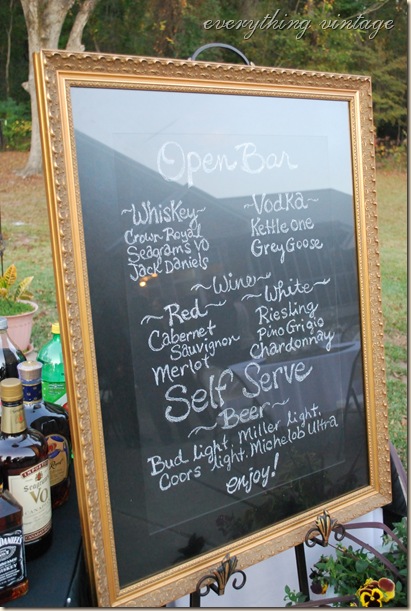 everything vintage
Open Bar
~Whiskey~
Crown Royal
Seagrams VO
Jack Daniels
~Vodka~
Kettle One
Grey Goose
~Wine~
~Red~
Cabernet
Sauvignon
Merlot
~White~
Riesling
Pino Grigio
Chardonnay
Self Serve
~Beer~
Bud light, Miller light,
Coors light, Michelob Ultra
enjoy!
Seagram's
VO
JACK
DANIEL'S